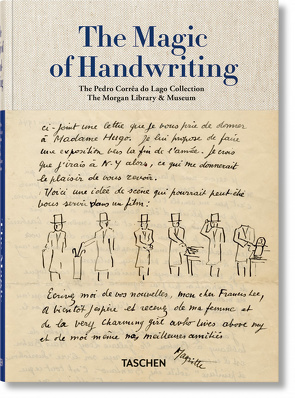 The Magic
of Handwriting
The Pedro Corrêa do Lago Collection
The Morgan Library & Museum
ci-joint une lettre que je vous prie de donner
à Madame Hugo. Je lui propose de faire
une exposition vers la fin de l'année. Je crois
que j'irais à N-Y alors, ce qui me donnerait
le plaisir de vous revoir.
Voici une idée de scène qui pourrait peut être
vous servir dans un film:
Ecrivez moi de vos nouvelles, mon cher Francis Lee,
à bientôt j'espère et recevez de ma femme et
de la very charming girl who lives above my
et de moi même nos meilleures amitiés
Magritte
TASCHEN